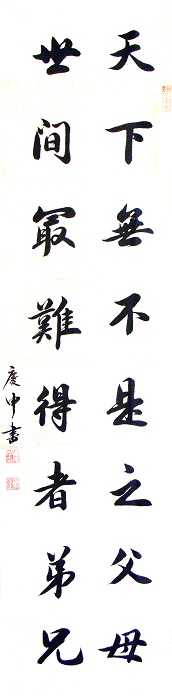 天下無不是之父母
世间冣難得者弟兄
慶申書